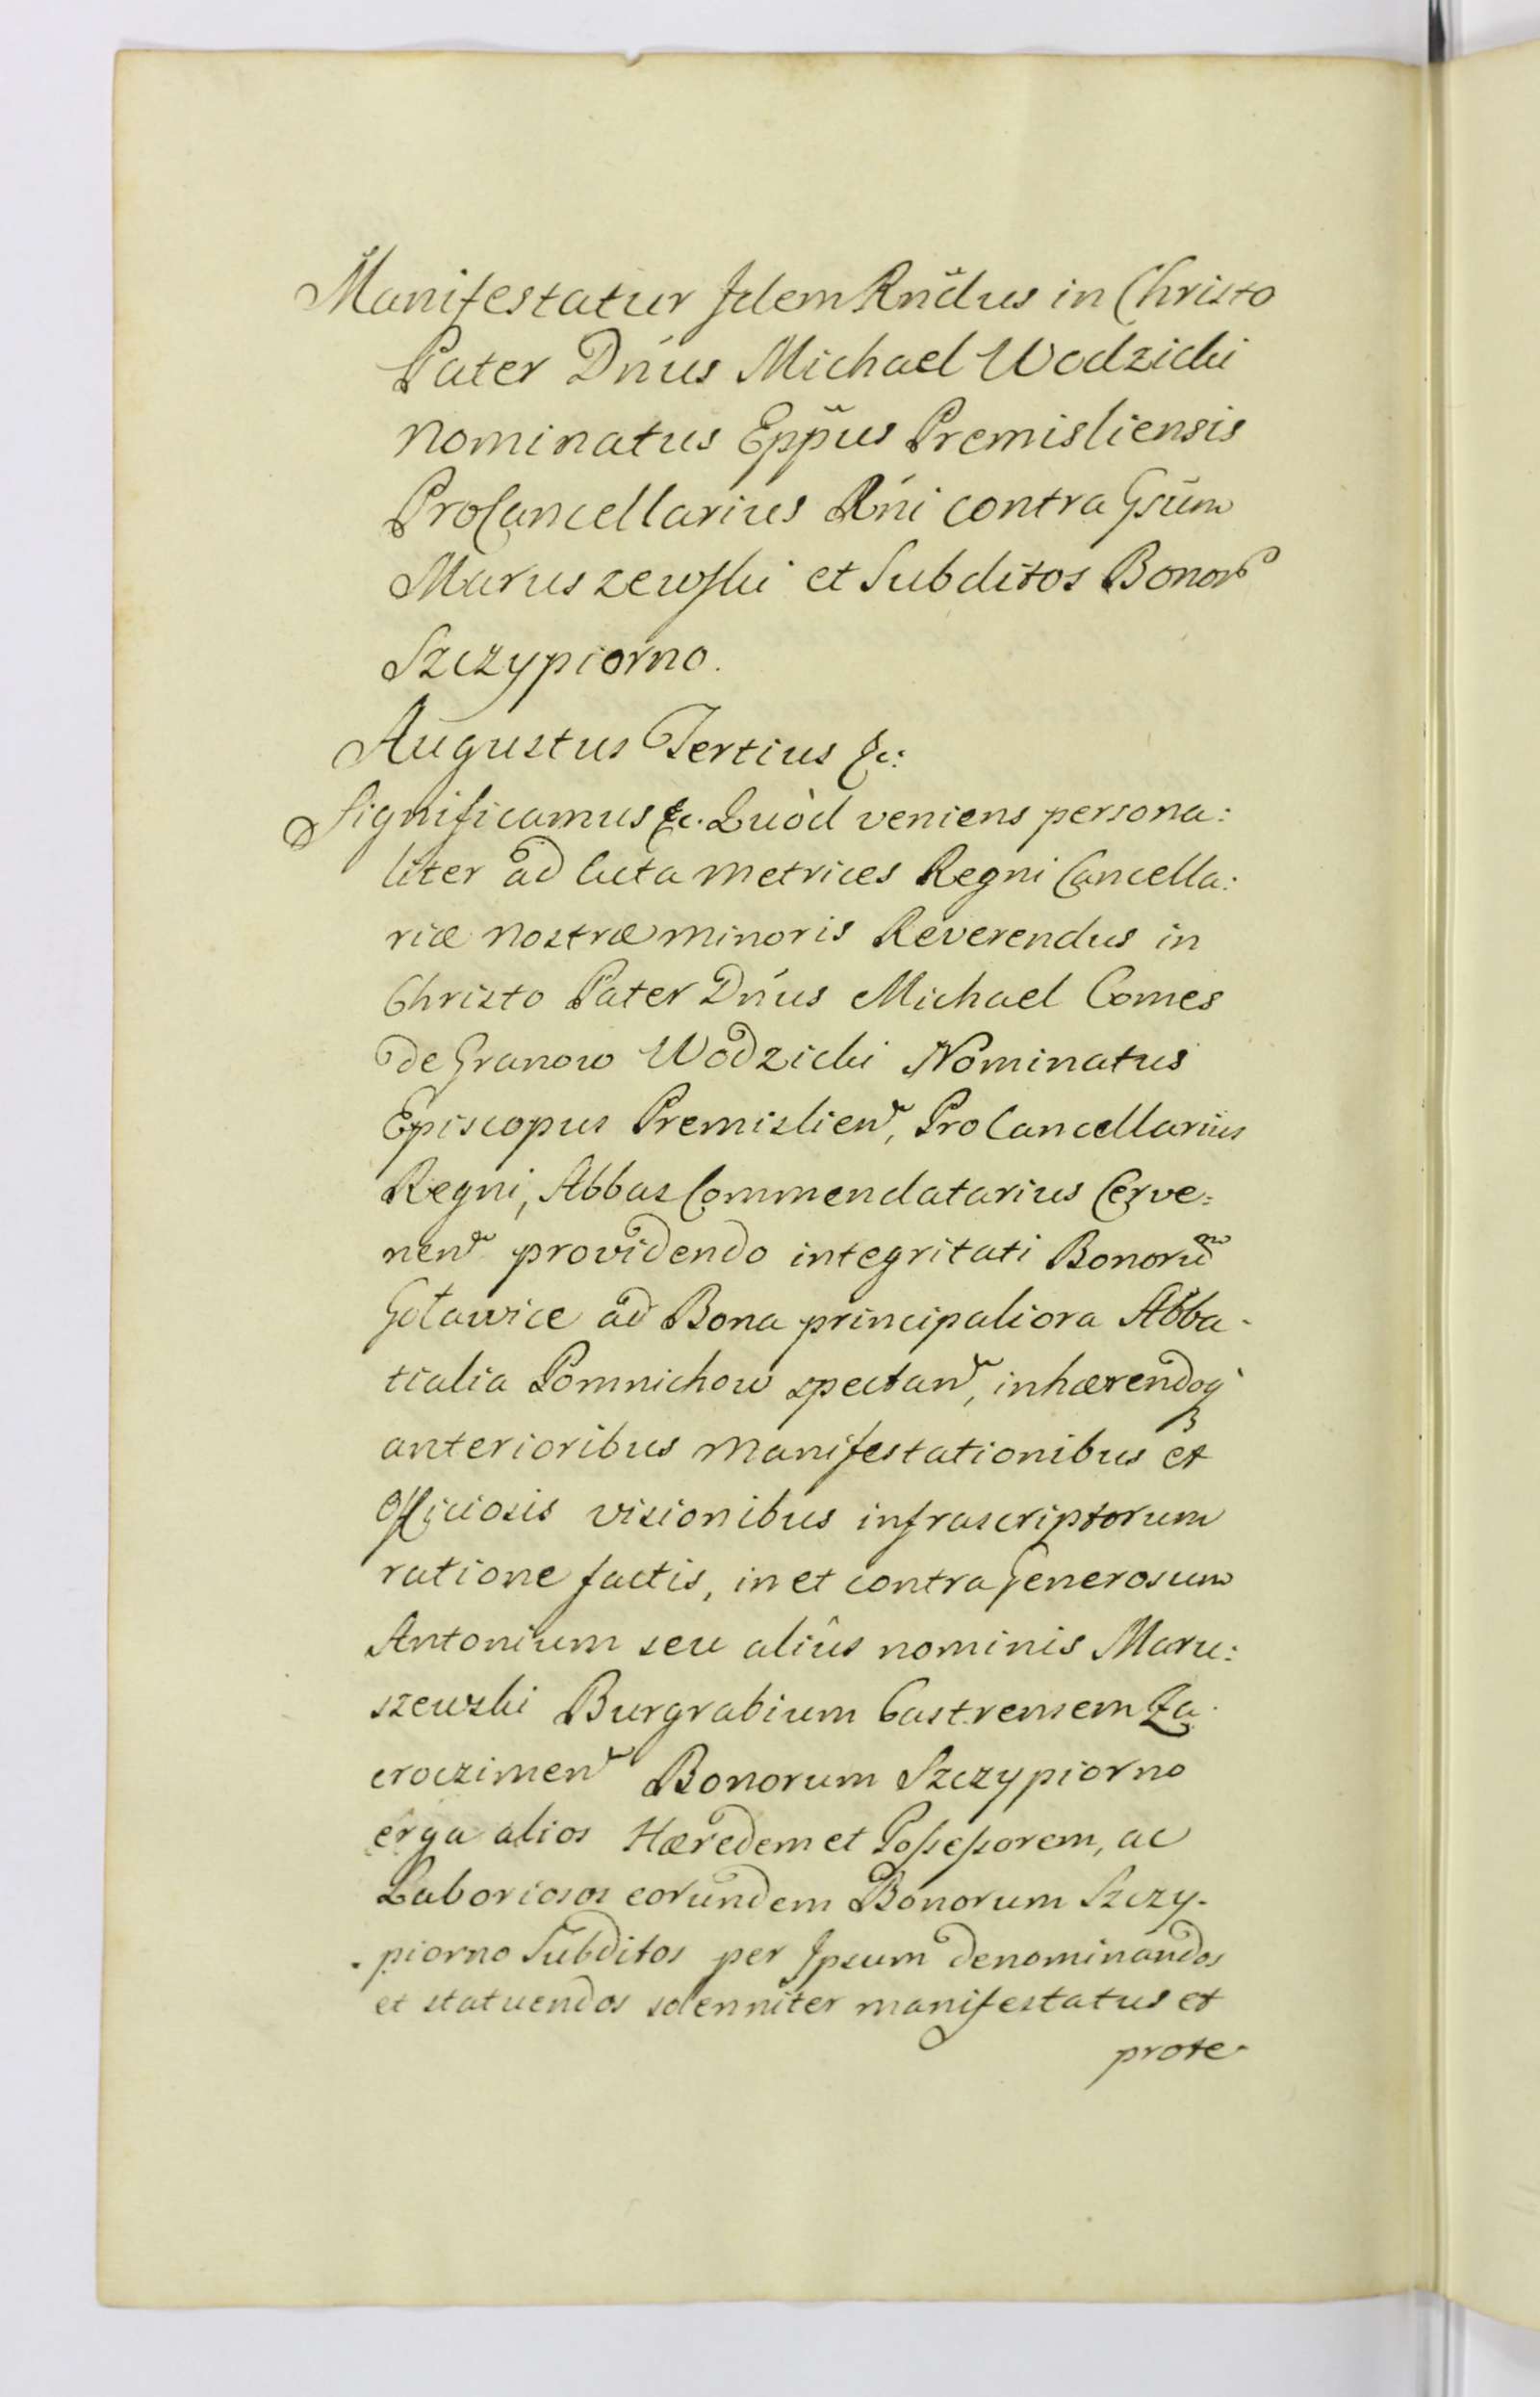 Manifestatur Idem Rñdus in Christo
Pater Dnus Michael Wodzicki
Nominatus Eppus Premisliensis
ProCancellarius Rni contra Gsum
Maruszewski et Subditos Bonor
Szczypiorno.
Augustus Tertius &c:
Significamus &c. Quòd veniens persona:
liter ad Acta Metrices Regni Cancella:
riæ Nostræ Minoris Reverendus in
Christo Pater Dnus Michael Comes
de Granow Wodzicki Nominatus
Episcopus Premislien, ProCancellarius
Regni, Abbas Commendatarius Cerve:
nen providendo integritati Bonorum
Goławice ad Bona principaliora Abba-
tialia Pomnichow spectan, inhærendoq
anterioribus Manifestationibus et
Officiosis visionibus infrascriptorum
ratione factis, in et contra Generosum
Antonium seu aliûs nominis Maru:
szewski Burgrabium Castrensem Za
croczimen Bonorum Szczypiorno
erga alios Hæredem et Possessorem, ac
Laboriosos eorundem Bonorum Szczy-
piorno Subditos per Ipsum denominandos
et statuendos solenniter manifestatus et
prote-